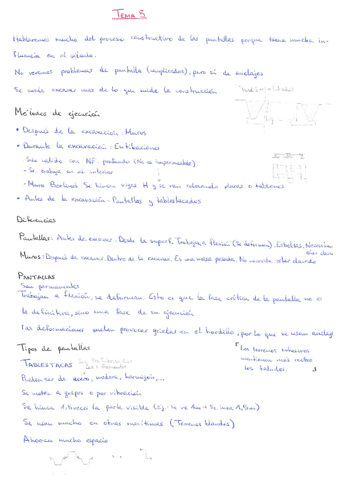 TEMA 5
Hablaremos mucho del proceso constructivo de las pantallas porque tiene mucha in-
fluencia en el cálculo.
No veremos problemas de pantalla (complicados), pero sí de anclajes
Se suele excavar más de lo que mide la construcción
Métodos de ejecución
• Después de la excavación: Muros
• Durante la excavación: Entibaciones
- Solo válido con NF. profundo (No es impermeable)
- Se trabaja en el interior
- Muro Berlinés: Se hincan vigas H y se van colocando placas o tablones
• Antes de la excavación: Pantallas y tablestacados
Diferencias
Pantallas: Antes de excavar. Desde la superf. Trabaja a flexión (Se deforma). Esbeltas. Necesita
estar clava
Muros: Después de excavar. Dentro de la excav. Es una masa pesada. No necesita estar clavado
PANTALLAS
Son permanentes
Trabajan a flexión, se deforman. Esto es que la fase crítica de la pantalla no es
la definitiva, sino una fase de su ejecución.
Las deformaciones suelen provocar grietas en el bordillo, por lo que se usan anclajes
Los terrenos cohesivos
mantienen más rectos
los taludes.
Tipos de pantallas
TABLESTACAS
Pueden ser de acero, madera, hormigón,...
Se meten a golpes o por vibración
Se hinca 1,5 veces la parte visible (Ej: Se ve 1m → Se mea 1,5m)
Se usan mucho en obras marítimas (Terrenos blandos)
Ahorran mucho espacio